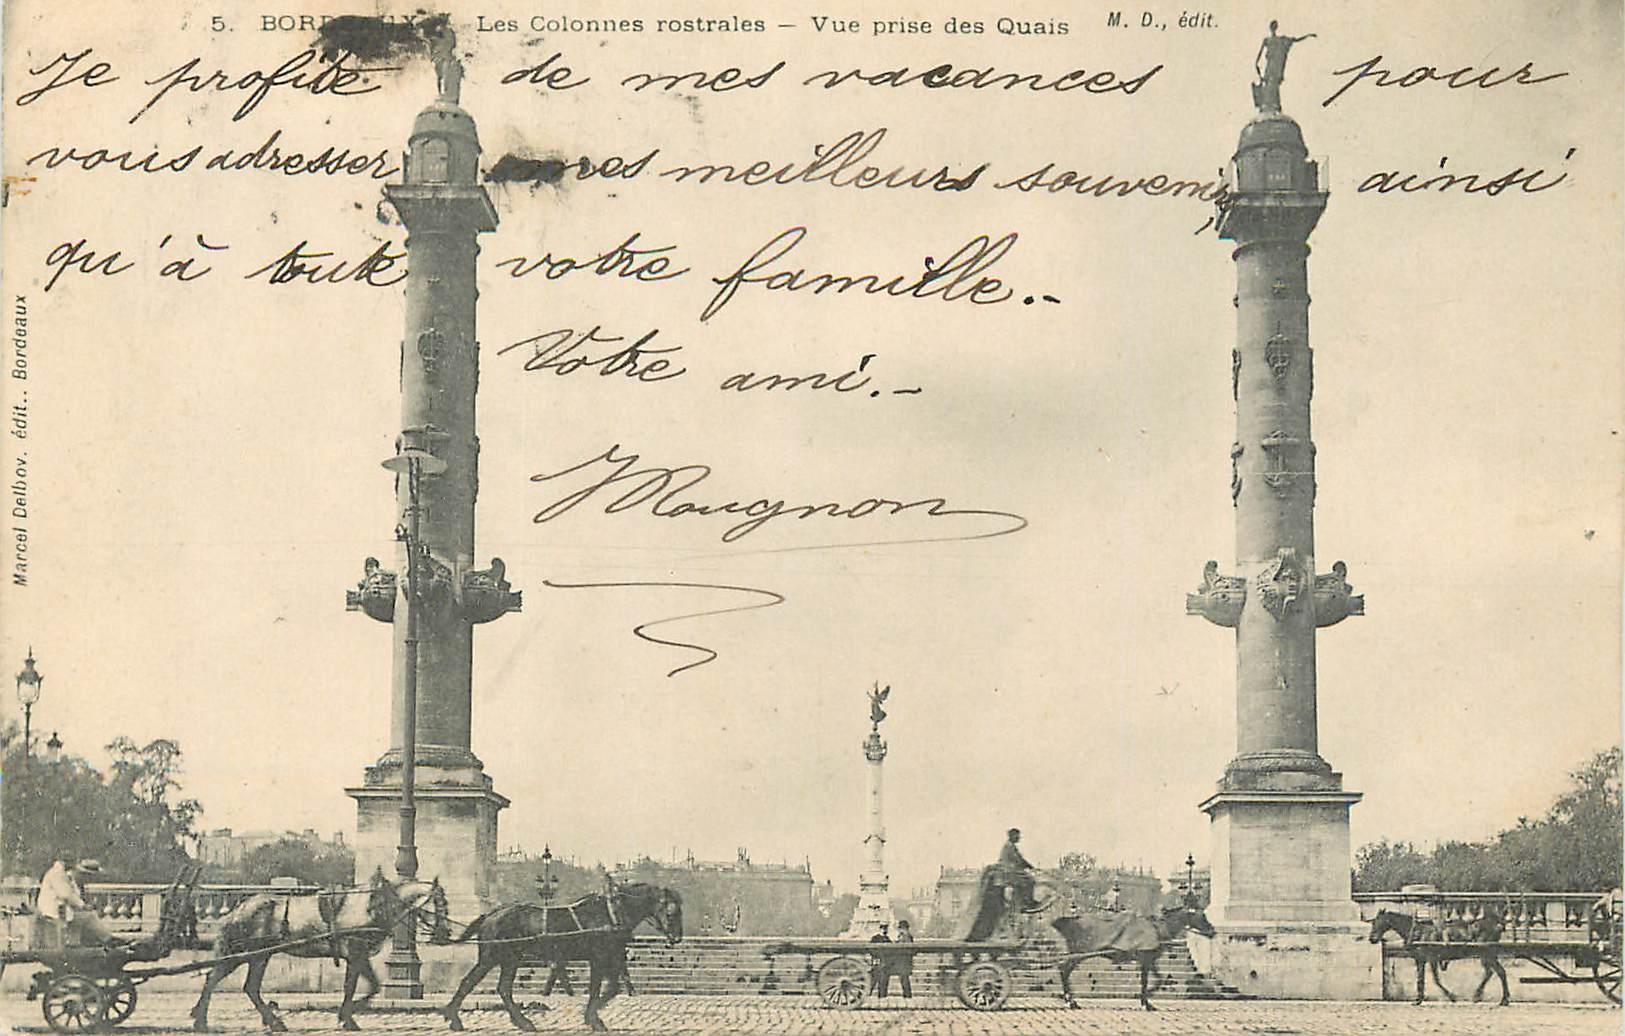 5. BORDEAUX - Les Colonnes rostrales — Vue prise des Quais M. D., édit.
Je profite de mes vacances pour
vous adresser mes meilleurs souvenirs, ainsi
qu'à toute votre famille.-
Votre ami.-
JMougnon
Marcel Delboy. édit.. Bordeaux